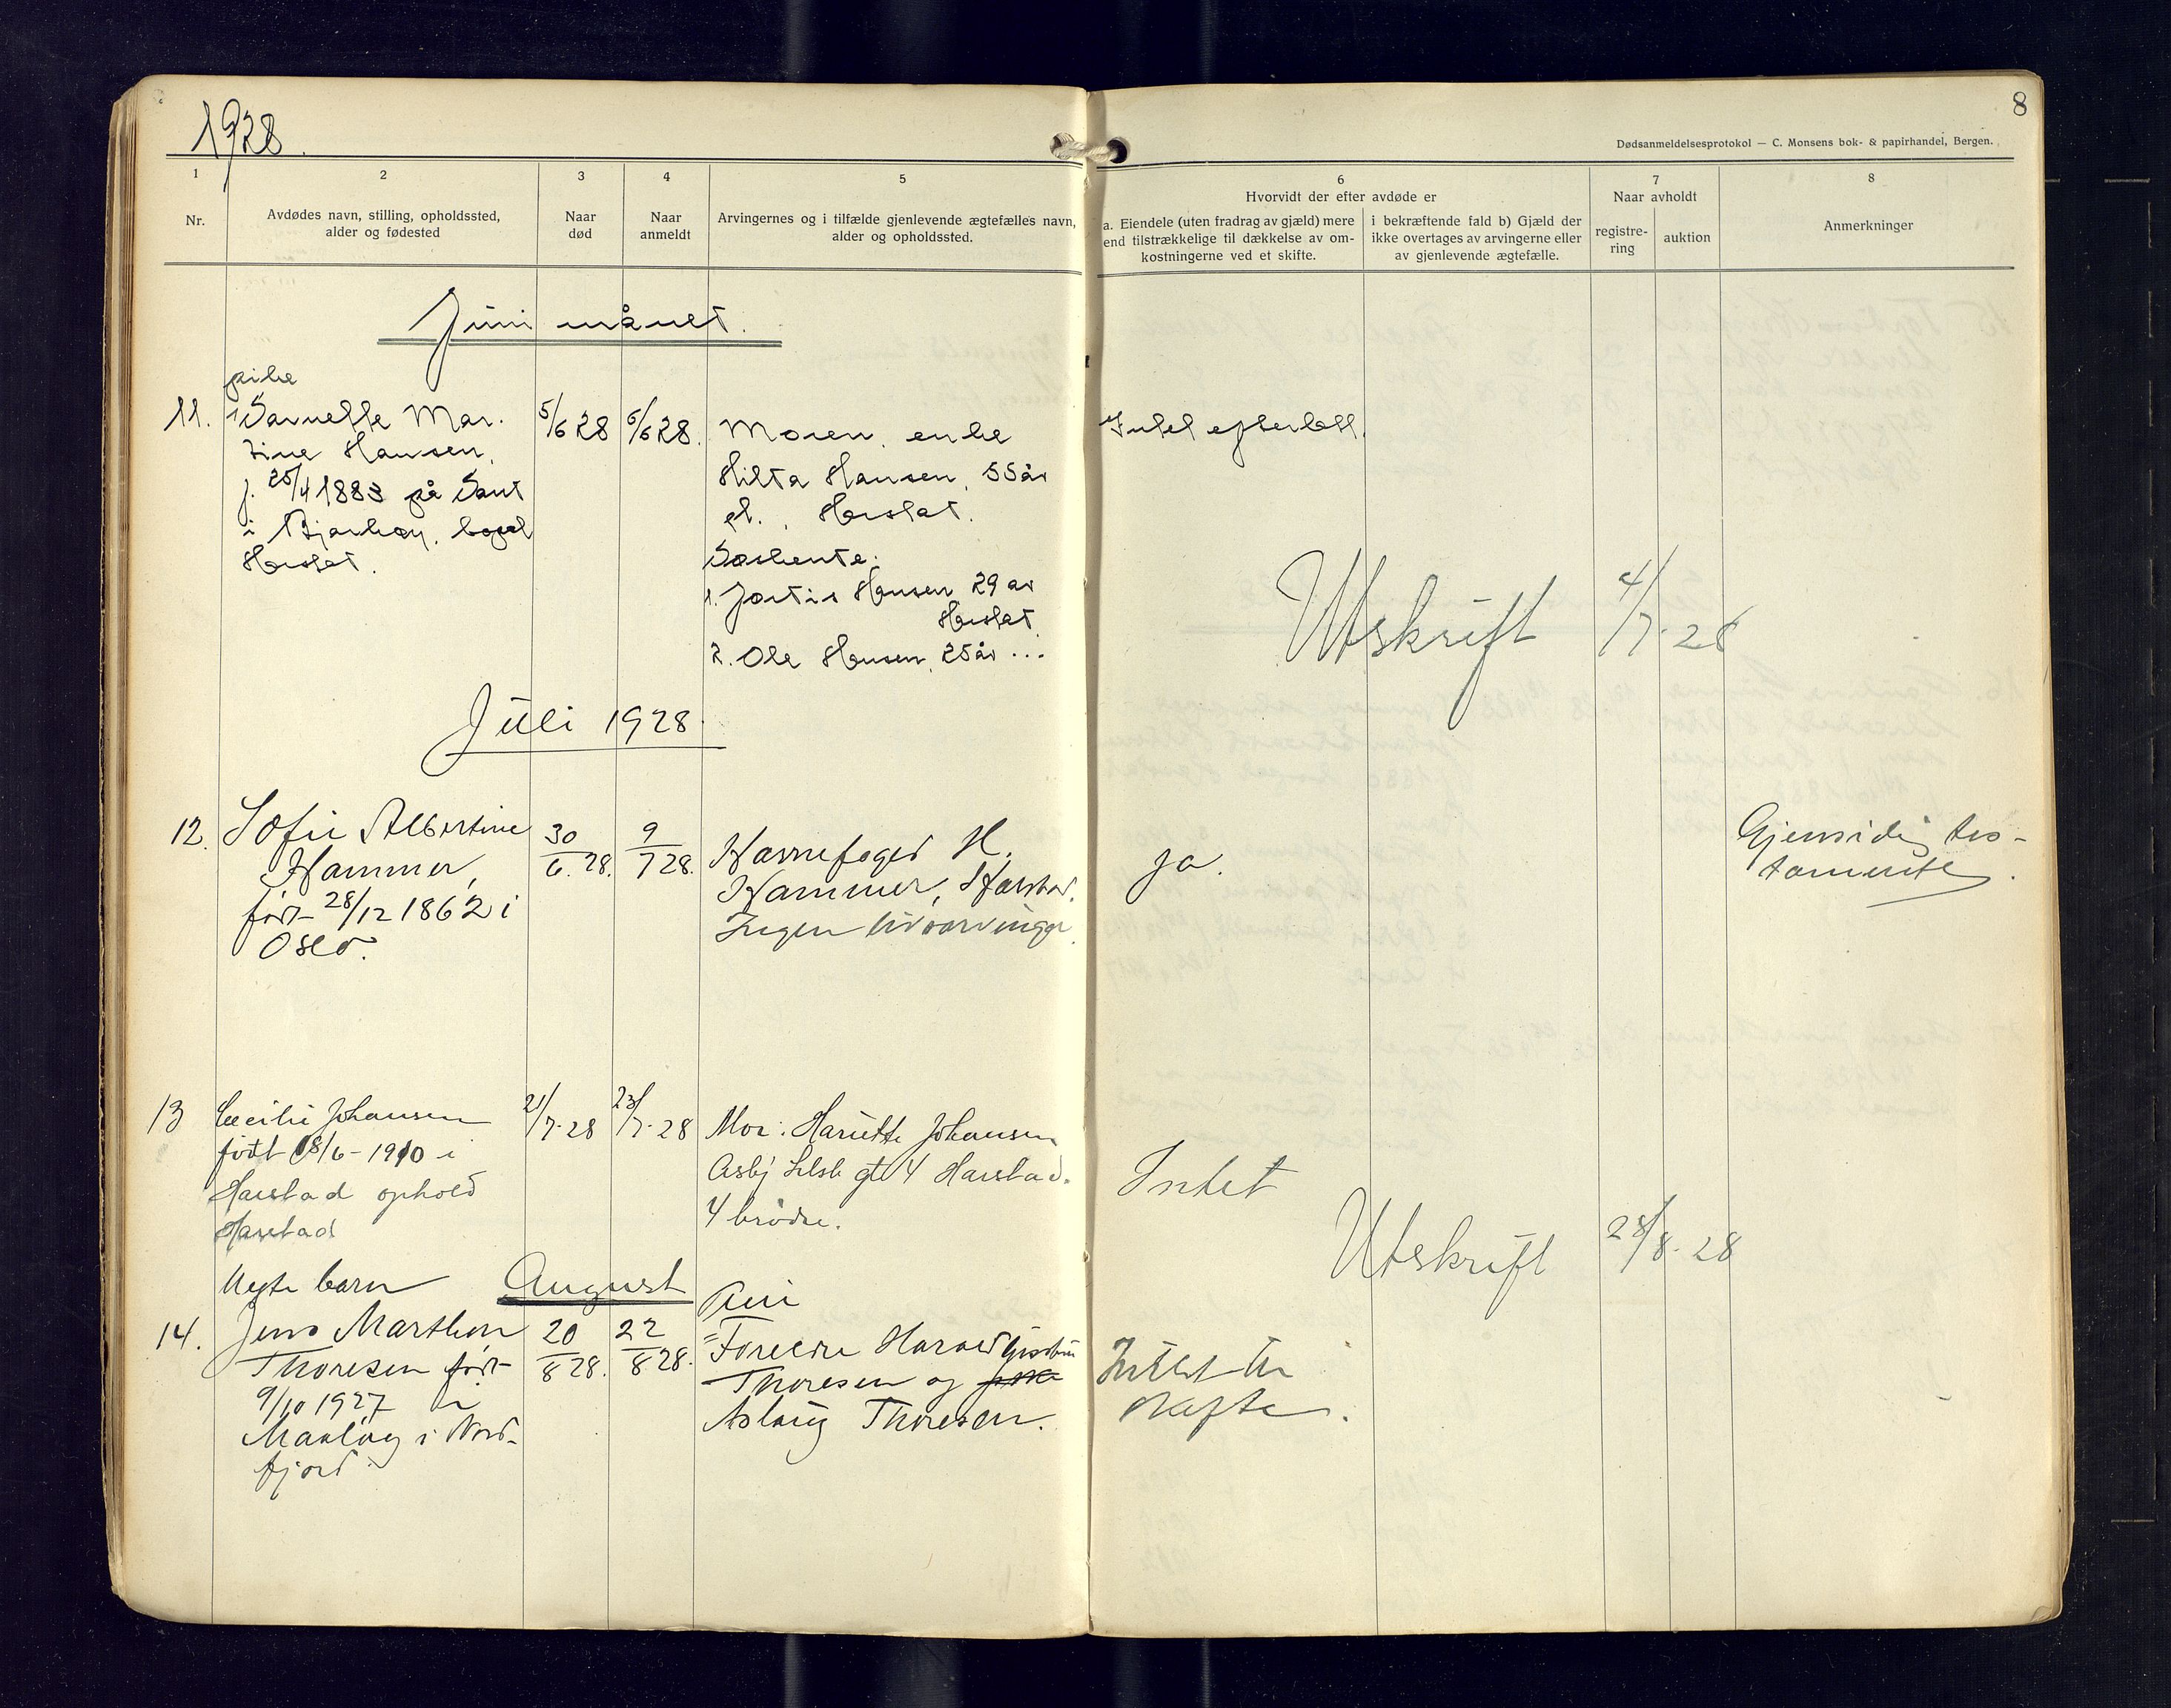 1928.
8
Dødsanmeldelsesprotokol — C. Monsens bok- & papirhandel, Bergen.
1
2
3
4
5
6
7
8
Nr.
Avdødes navn, stilling, opholdssted,
alder og fødested
Naar
død
Naar
anmeldt
Arvingernes og i tilfælde gjenlevende ægtefælles navn,
alder og opholdssted.
Hvorvidt der efter avdøde er
a. Eiendele (uten fradrag av gjæld) mere
end tilstrækkelige til dækkelse av om-
kostningerne ved et skifte.
i bekræftende fald b) Gjæld der
ikke overtages av arvingerne eller
av gjenlevende ægtefælle.
Naar avholdt
registre-
ring
auktion
Anmerkninger
Juni månet.
pike
11.
Mar-
tine Hansen,
f. 25/4 1883 på Sant
i Bjarkøy, bopæl
Harstat.
5/6 28
6/6 28.
Moren, enke
Hilta Hansen, 55 år
gl., Harstat.
Søskente:
1. Hansen 29 år
Harstat
2. Ole Hansen, 25 år ...
Intet efterlatt.
Utskrift 4/7-28
Juli 1928.
12.
Sofie Albertine
Hammer,
født 28/12 1862 i
Oslo.
30/6.28.
9/7 28.
Havnefoged H.
Hammer, Harstad.
Ingen livsarvinger
ja.
Gjensidig tes-
tamente.
13
Cecilie Johansen
født 18/6-1910 i
Harstad ophold
Harstad
21/7-28
23/7-28
Mor: Hariette Johansen
Asbj Selsb gt 4 Harstad.
4 brødre.
Intet
Utskrift 28/8-28
August
Uegte barn
14.
Jens Marthon
Thoresen født
9/10 1927 i
Måløy i Nord-
fjord.
20/8 28.
22/8 28.
Foreldre Harald
Thoresen og
Aslaug Thoresen.
Intet til
skifte.